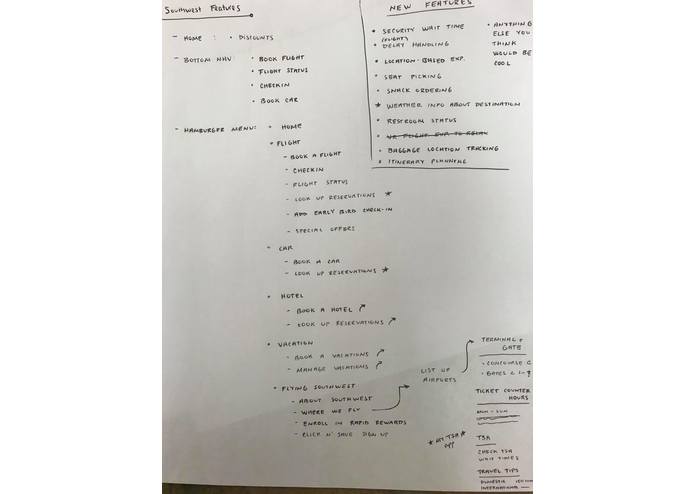 SOUTHWEST FEATURES
- HOME : • DISCOUNTS
- BOTTOM NAV • BOOK FLIGHT
• FLIGHT STATUS
• CHECKIN
• BOOK CAR
- HAMBURGER MENU: • HOME
• FLIGHT
- BOOK A FLIGHT
- CHECKIN
- FLIGHT STATUS
- LOOK UP RESERVATIONS *
- ADD EARLY BIRD CHECK-IN
- SPECIAL OFFERS
• CAR
- BOOK A CAR
- LOOK UP RESERVATIONS *
• HOTEL
- BOOK A HOTEL ↗
- LOOK UP RESERVATIONS ↗
• VACATION
- BOOK A VACATIONS ↗
- MANAGE VACATIONS ↗
• FLYING SOUTHWEST
- ABOUT SOUTHWEST
- WHERE WE FLY
- ENROLL IN RAPID REWARDS
- CLICK N' SAVE SIGN UP
NEW FEATURES
• SECURITY WAIT TIME
(FLIGHT)
• DELAY HANDLING
• LOCATION-BASED EXP.
• SEAT PICKING
• SNACK ORDERING
* WEATHER INFO ABOUT DESTINATION
• RESTROOM STATUS
• VR FLIGHT EXP TO RELAX
• BAGGAGE LOCATION TRACKING
• ITINERARY PLANNING
• ANYTHING
ELSE YOU
THINK
WOULD BE
COOL
LIST OF
AIRPORTS
TERMINAL +
GATE
- CONCOURSE C
• GATES C 1-9
TICKET COUNTER
HOURS
MON - SUN
* MY TSA *
APP
TSA
CHECK TSA
WAIT TIMES
TRAVEL TIPS
DOMESTIC
INTERNATIONAL -